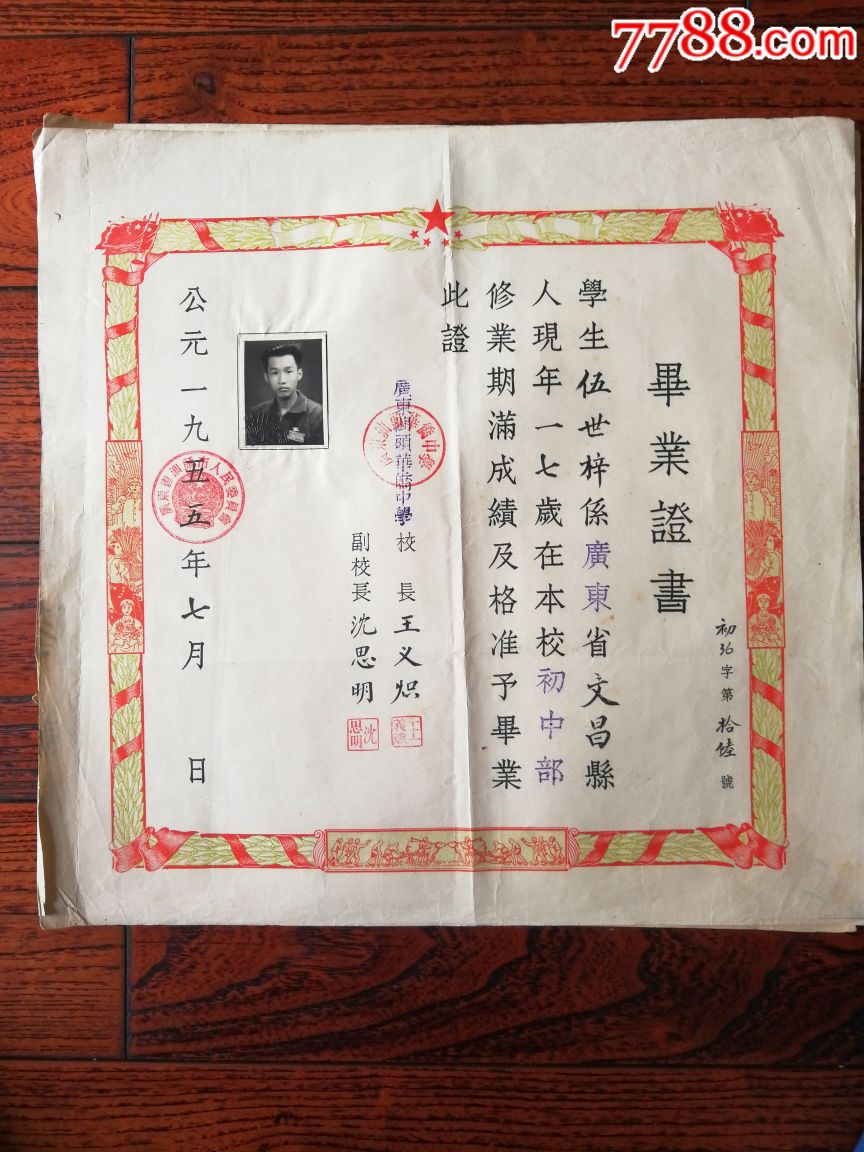 7788.com
畢業證書
初36字第拾陸號
學生伍世梓係廣東省文昌縣
人現年一七歲在本校初中部
修業期滿成績及格准予畢業
此證
廣東汕頭華僑中學
校長王义炽
副校長沈思明
沈思明
公元一九五五年七月 日